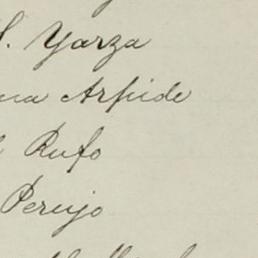 S. Yarza
na Arpide
Rufo
Pereijo